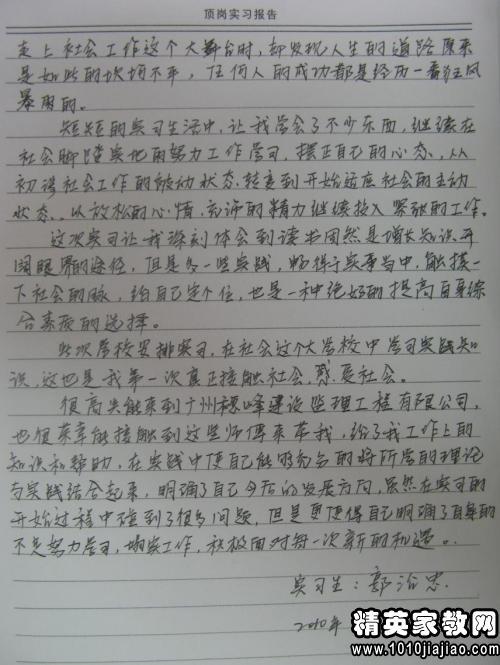 顶岗实习报告
走上社会工作这个大舞台时,却发现人生的道路原来
是如此的坎坷不平,任何人的成功都是经历一番狂风
暴雨的。
短短的实习生活中,让我学会了不少东西,继续在
社会脚踏实地用努力工作学习,摆正自己的心态,从
初涉社会工作的被动状态转变到开始适应社会的主动
状态、以放松的心情,充沛的精力继续投入紧张的工作。
这次实习让我深刻体会到读书固然是增长知识开
阔眼界的途径,但是多一些实践,畅徉于实事当中,触摸一
下社会的脉,给自己定个位,也是一种绝好的提高自身综
合素质的选择。
此次学校安排实习,在社会这个大学校中学习实践知
识,这也是我第一次真正接触社会,感受社会。
很高兴能来到广州穗峰建设监理工程有限公司,
也很荣幸能接触到这些师傅来带我,给了我工作上的
知识和帮助,在实践中使自己能够充分的将所学的理论
与实践结合起来,明确了自己今后的发展方向,虽然在实习的
开始过程中碰到了很多问题,但是更使得自己明确了自身的
不足努力学习,踏实工作,积极面对每一次新的机遇。
实习生:郭治忠
2010年
精英家教网
www.1010jiajiao.com